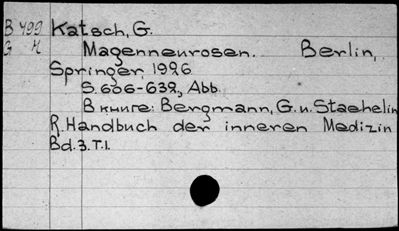 B 499 Katsch, G.
G K Magenneurosen. Berlin,
Springer, 1926
S. 606-632, Abb.
В книге: Bergmann, G. u. Staehelin
R. Handbuch der inneren Medizin
Bd. 3. T. 1.